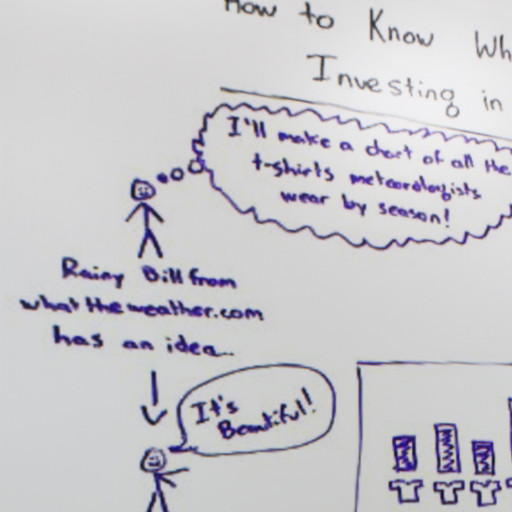 How to Know
Investing in
I'll make a chart of all the
t-shirts meteorologists
wear by season!
Rainy Bill from
whattheweather.com
has an idea...
It's
Beautiful!